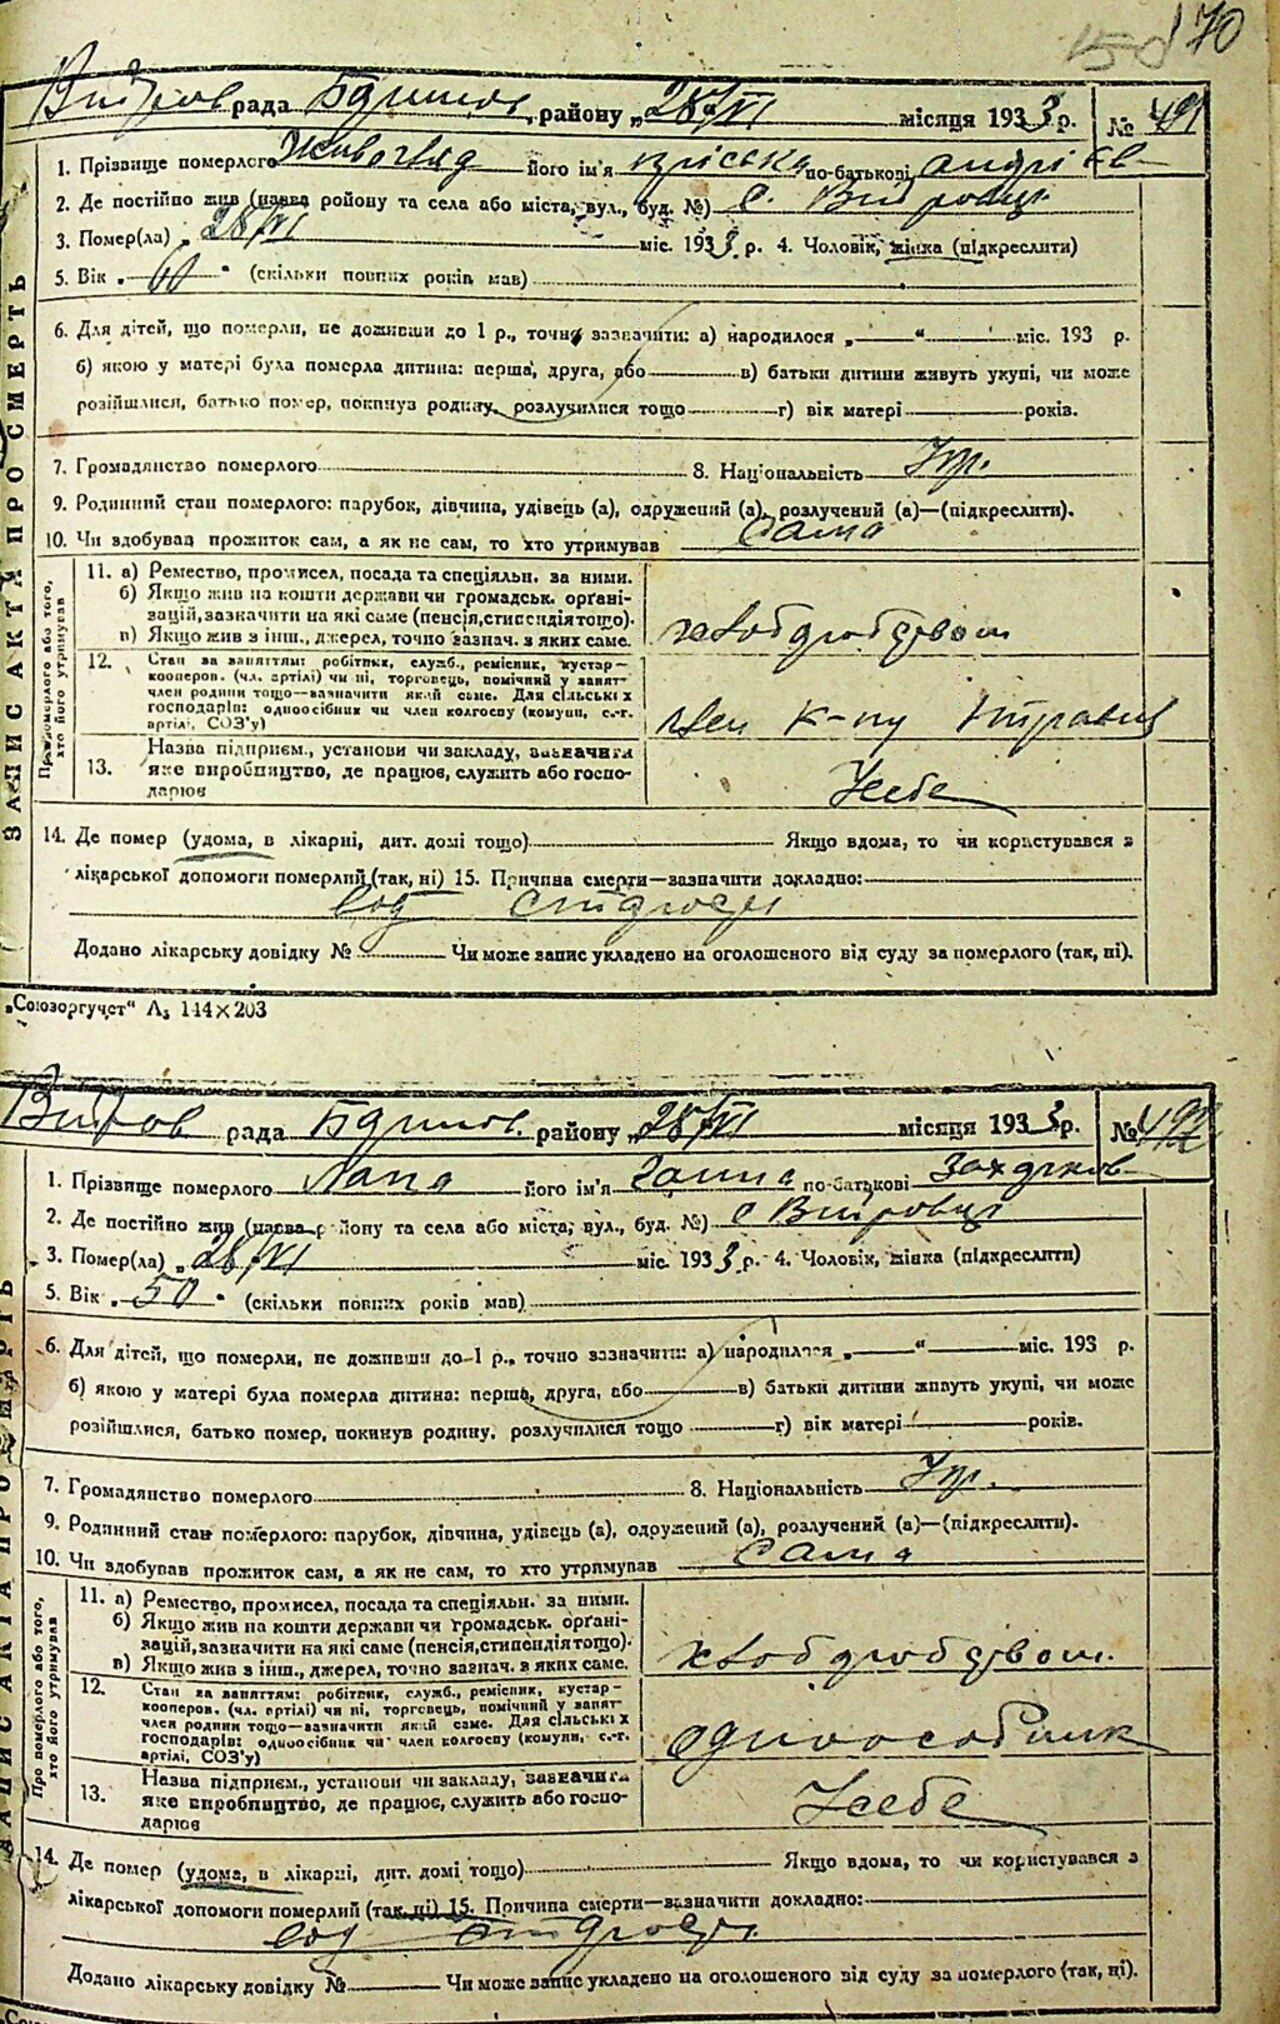 170
рада району „28/VI місяця 1933 р. № 491
1. Прізвище померлого його ім'я по-батькові
2. Де постійно жив (назва ройону та села або міста, вул., буд. №) с.
3. Помер(ла) „ 28/VI міс. 1933 р. 4. Чоловік, жінка (підкреслити)
5. Вік „ 60 " (скільки повних років мав)
6. Для дітей, що померли, не доживши до 1 р., точно зазначити: а) народилося „ " міс. 193 р.
б) якою у матері була померла дитина: перша, друга, або в) батьки дитини живуть укупі, чи може
розійшлися, батько помер, покинув родину, розлучилися тощо г) вік матері років.
7. Громадянство померлого 8. Національність Укр.
9. Родинний стан померлого: парубок, дівчина, удівець (а), одружений (а), розлучений (а)—(підкреслити).
10. Чи здобував прожиток сам, а як не сам, то хто утримував Сама
ЗАПИС АКТА ПРО СМЕРТЬ
Про померлого або того,
хто його утримував
11. а) Ремество, промисел, посада та спеціяльн. за ними.
б) Якщо жив на кошти держави чи громадськ. органі-
зацій, зазначити на які саме (пенсія, стипендія тощо).
в) Якщо жив з інш., джерел, точно зазнач. з яких саме.
12. Стан за заняттям: робітник, служб., ремісник, кустар—
кооперов. (чл. артілі) чи ні, торговець, помічний у занят-
член родини тощо—зазначити який саме. Для сільських
господарів: одноосібник чи член колгоспу (комуни, с.-г.
артілі, СОЗ'у)
член к-пу
13. Назва підприєм., установи чи закладу, зазначити
яке виробництво, де працює, служить або госпо-
дарює
У себе
14. Де помер (удома, в лікарні, дит. домі тощо) Якщо вдома, то чи користувався з
лікарської допомоги померлий (так, ні) 15. Причина смерти—зазначити докладно:
Додано лікарську довідку № Чи може запис укладено на оголошеного від суду за померлого (так, ні).
„Союзоргучет“ А₅ 144×203
рада району „28/VI місяця 1933 р. № 492
1. Прізвище померлого Лапа його ім'я Ганна по-батькові
2. Де постійно жив (назва району та села або міста, вул., буд. №) с
3. Помер(ла) „ 28/VI міс. 1933 р. 4. Чоловік, жінка (підкреслити)
5. Вік „ 50 " (скільки повних років мав)
6. Для дітей, що померли, не доживши до 1 р., точно зазначити: а) народилося „ " міс. 193 р.
б) якою у матері була померла дитина: перша, друга, або в) батьки дитини живуть укупі, чи може
розійшлися, батько помер, покинув родину, розлучилися тощо г) вік матері років.
7. Громадянство померлого 8. Національність Укр.
9. Родинний стан померлого: парубок, дівчина, удівець (а), одружений (а), розлучений (а)—(підкреслити).
10. Чи здобував прожиток сам, а як не сам, то хто утримував сама
ЗАПИС АКТА ПРО СМЕРТЬ
Про померлого або того,
хто його утримував
11. а) Ремество, промисел, посада та спеціяльн. за ними.
б) Якщо жив на кошти держави чи громадськ. органі-
зацій, зазначити на які саме (пенсія, стипендія тощо).
в) Якщо жив з інш., джерел, точно зазнач. з яких саме.
12. Стан за заняттям: робітник, служб., ремісник, кустар—
кооперов. (чл. артілі) чи ні, торговець, помічний у занят-
член родини тощо—зазначити який саме. Для сільських
господарів: одноосібник чи член колгоспу (комуни, с.-г.
артілі, СОЗ'у)
одноособник
13. Назва підприєм., установи чи закладу, зазначити
яке виробництво, де працює, служить або госпо-
дарює
У себе
14. Де помер (удома, в лікарні, дит. домі тощо) Якщо вдома, то чи користувався з
лікарської допомоги померлий (так, ні) 15. Причина смерти—зазначити докладно:
Додано лікарську довідку № Чи може запис укладено на оголошеного від суду за померлого (так, ні).